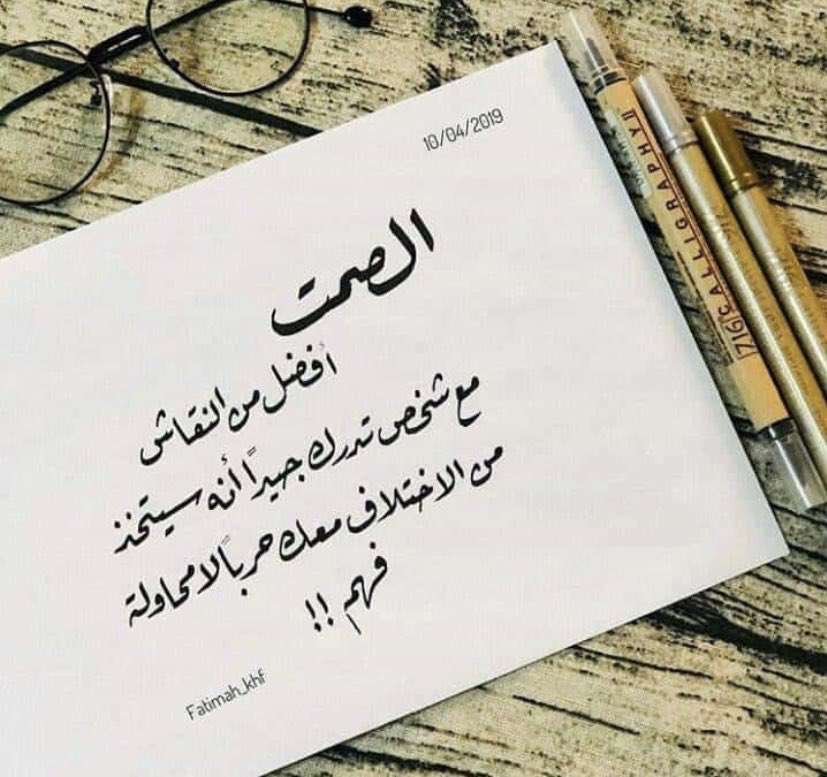 10/04/2019
الصمت
أفضل من النقاش
مع شخص تدرك جيداً أنه سيتخذ
من الاختلاف معك حرباً لا محاولة
فهم !!
Fatimah_khf
CALLIGRAPHY